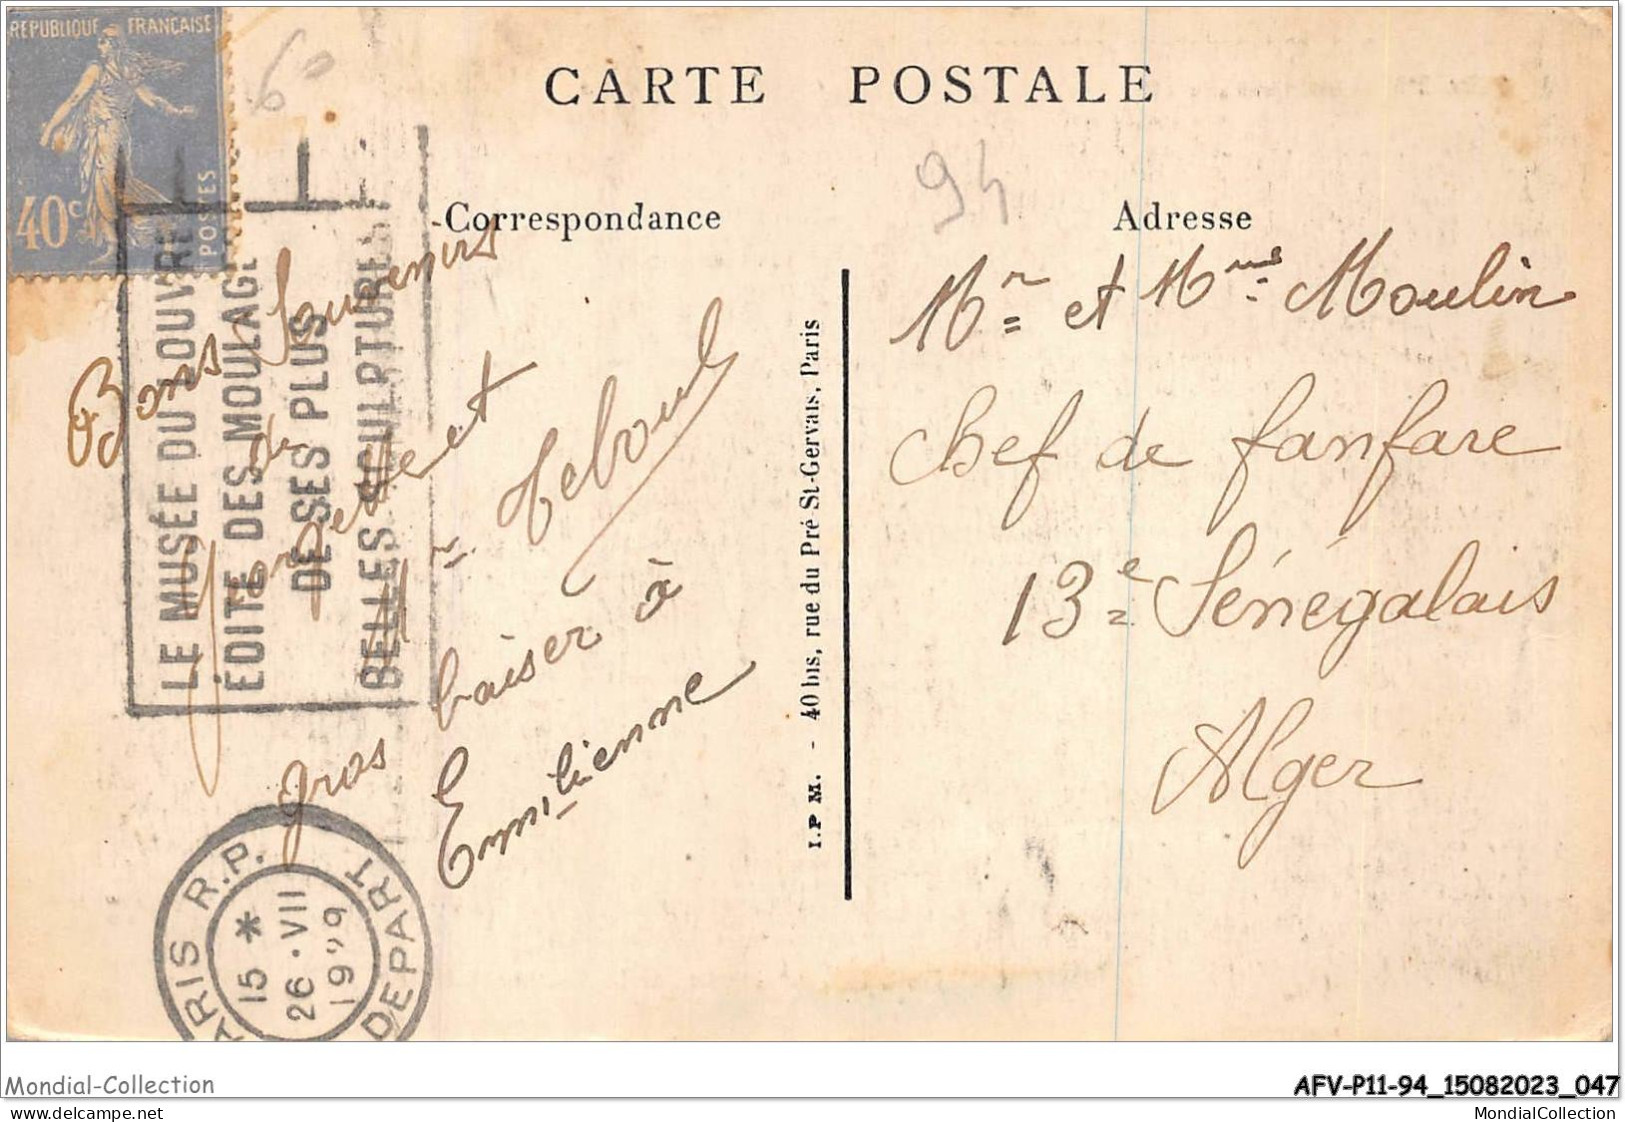 REPUBLIQUE FRANÇAISE
40c
POSTES
60
CARTE POSTALE
94
Correspondance
Adresse
LE MUSÉE DU LOUVRE
ÉDITE DES MOULAGES
DE SES PLUS
BELLES SCULPTURES
Bons Souvenirs
de
et
Mr Teboul
gros baiser à
Emilienne
I.P M. - 40 bis, rue du Pré St-Gervais, Paris
Mr et Mme Moulin
Chef de fanfare
13e Sénégalais
Alger
PARIS R.P.
DEPART
15 *
26 · VII
19
Mondial-Collection
AFV-P11-94_15082023_047
Plus d'articles sur
MondialCollection